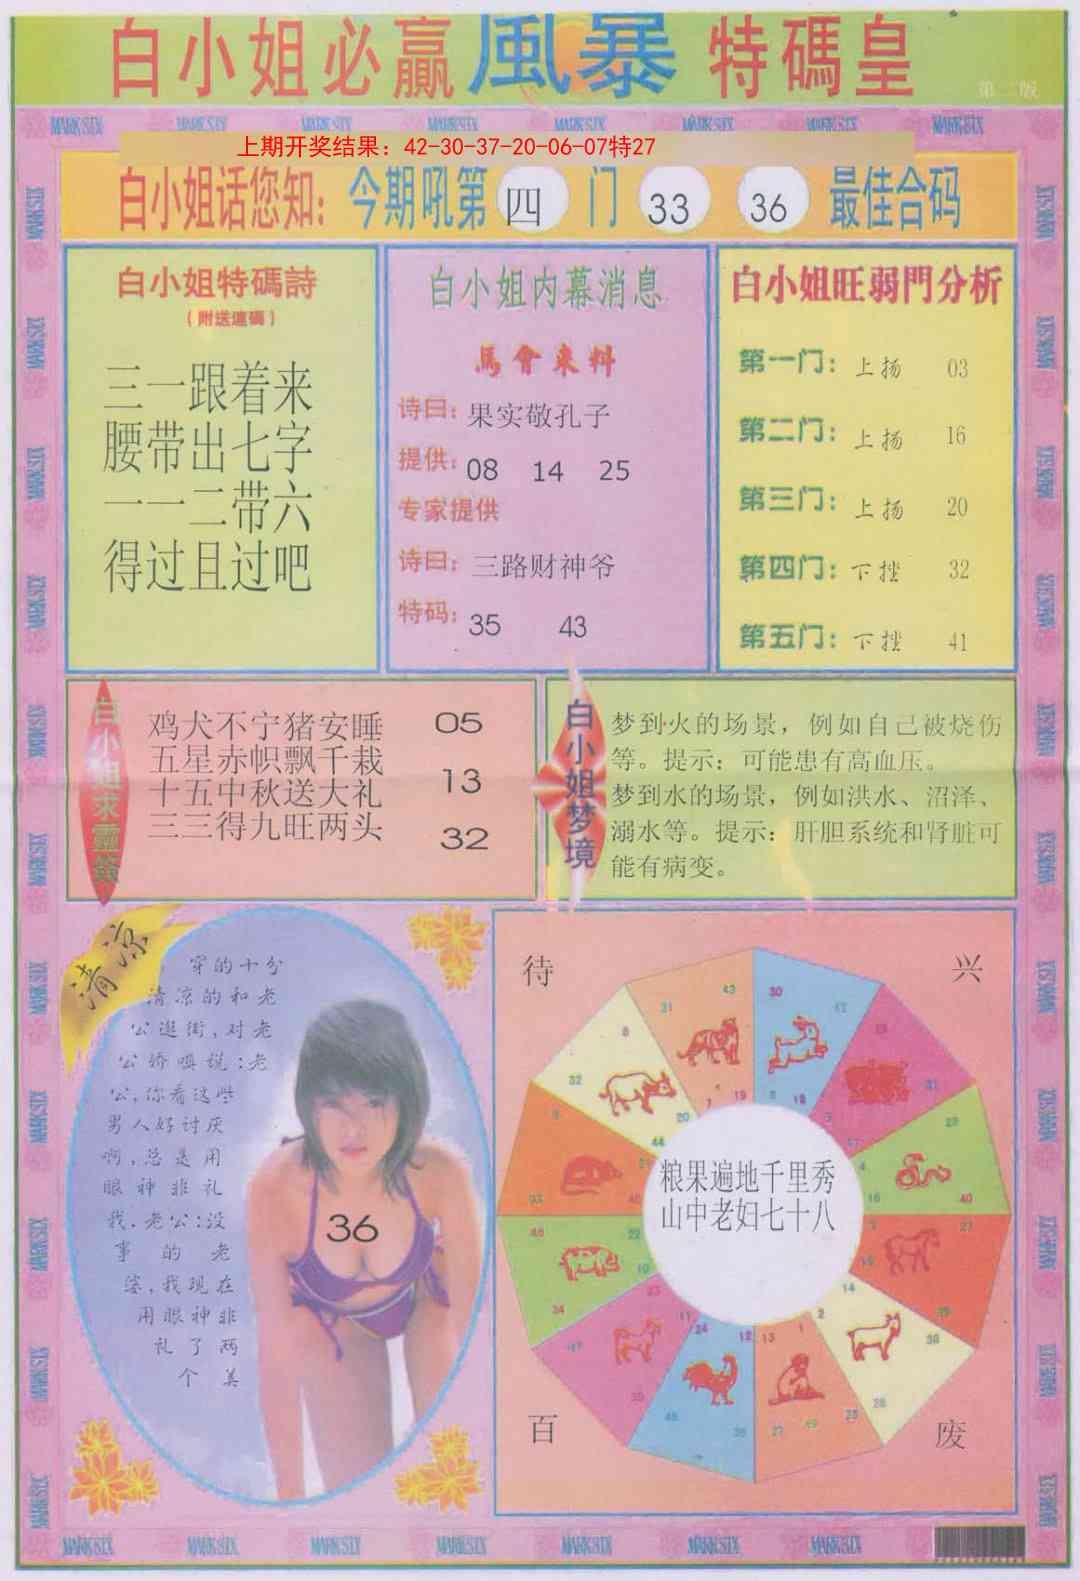 白小姐必贏 風暴 特碼皇
第二版
MARK SIX MARK SIX MARK SIX MARK SIX MARK SIX MARK SIX MARK SIX MARK SIX
上期开奖结果：42-30-37-20-06-07特27
白小姐话您知：今期吼第 四 门 33 36 最佳合码
白小姐特碼詩
（附送連碼）
三一跟着来
腰带出七字
一一二带六
得过且过吧
白小姐内幕消息
馬會来料
诗曰：果实敬孔子
提供：08 14 25
专家提供
诗曰：三路财神爷
特码：35 43
白小姐旺弱門分析
第一门：上扬 03
第二门：上扬 16
第三门：上扬 20
第四门：下挫 32
第五门：下挫 41
白小姐求靈簽
鸡犬不宁猪安睡 05
五星赤帜飘千栽
十五中秋送大礼 13
三三得九旺两头 32
白小姐梦境
梦到火的场景，例如自己被烧伤
等。提示：可能患有高血压。
梦到水的场景，例如洪水、沼泽、
溺水等。提示：肝胆系统和肾脏可
能有病变。
清凉
穿的十分
清凉的和老
公逛街，对老
公娇嗔说：老
公，你看这些
男人好讨厌
啊，总是用
眼神非礼
我．老公：没
事的老
婆，我现在
用眼神非
礼了两
个美
36
待
兴
粮果遍地千里秀
山中老妇七十八
百
废
MARK SIX MARK SIX MARK SIX MARK SIX MARK SIX MARK SIX MARK SIX